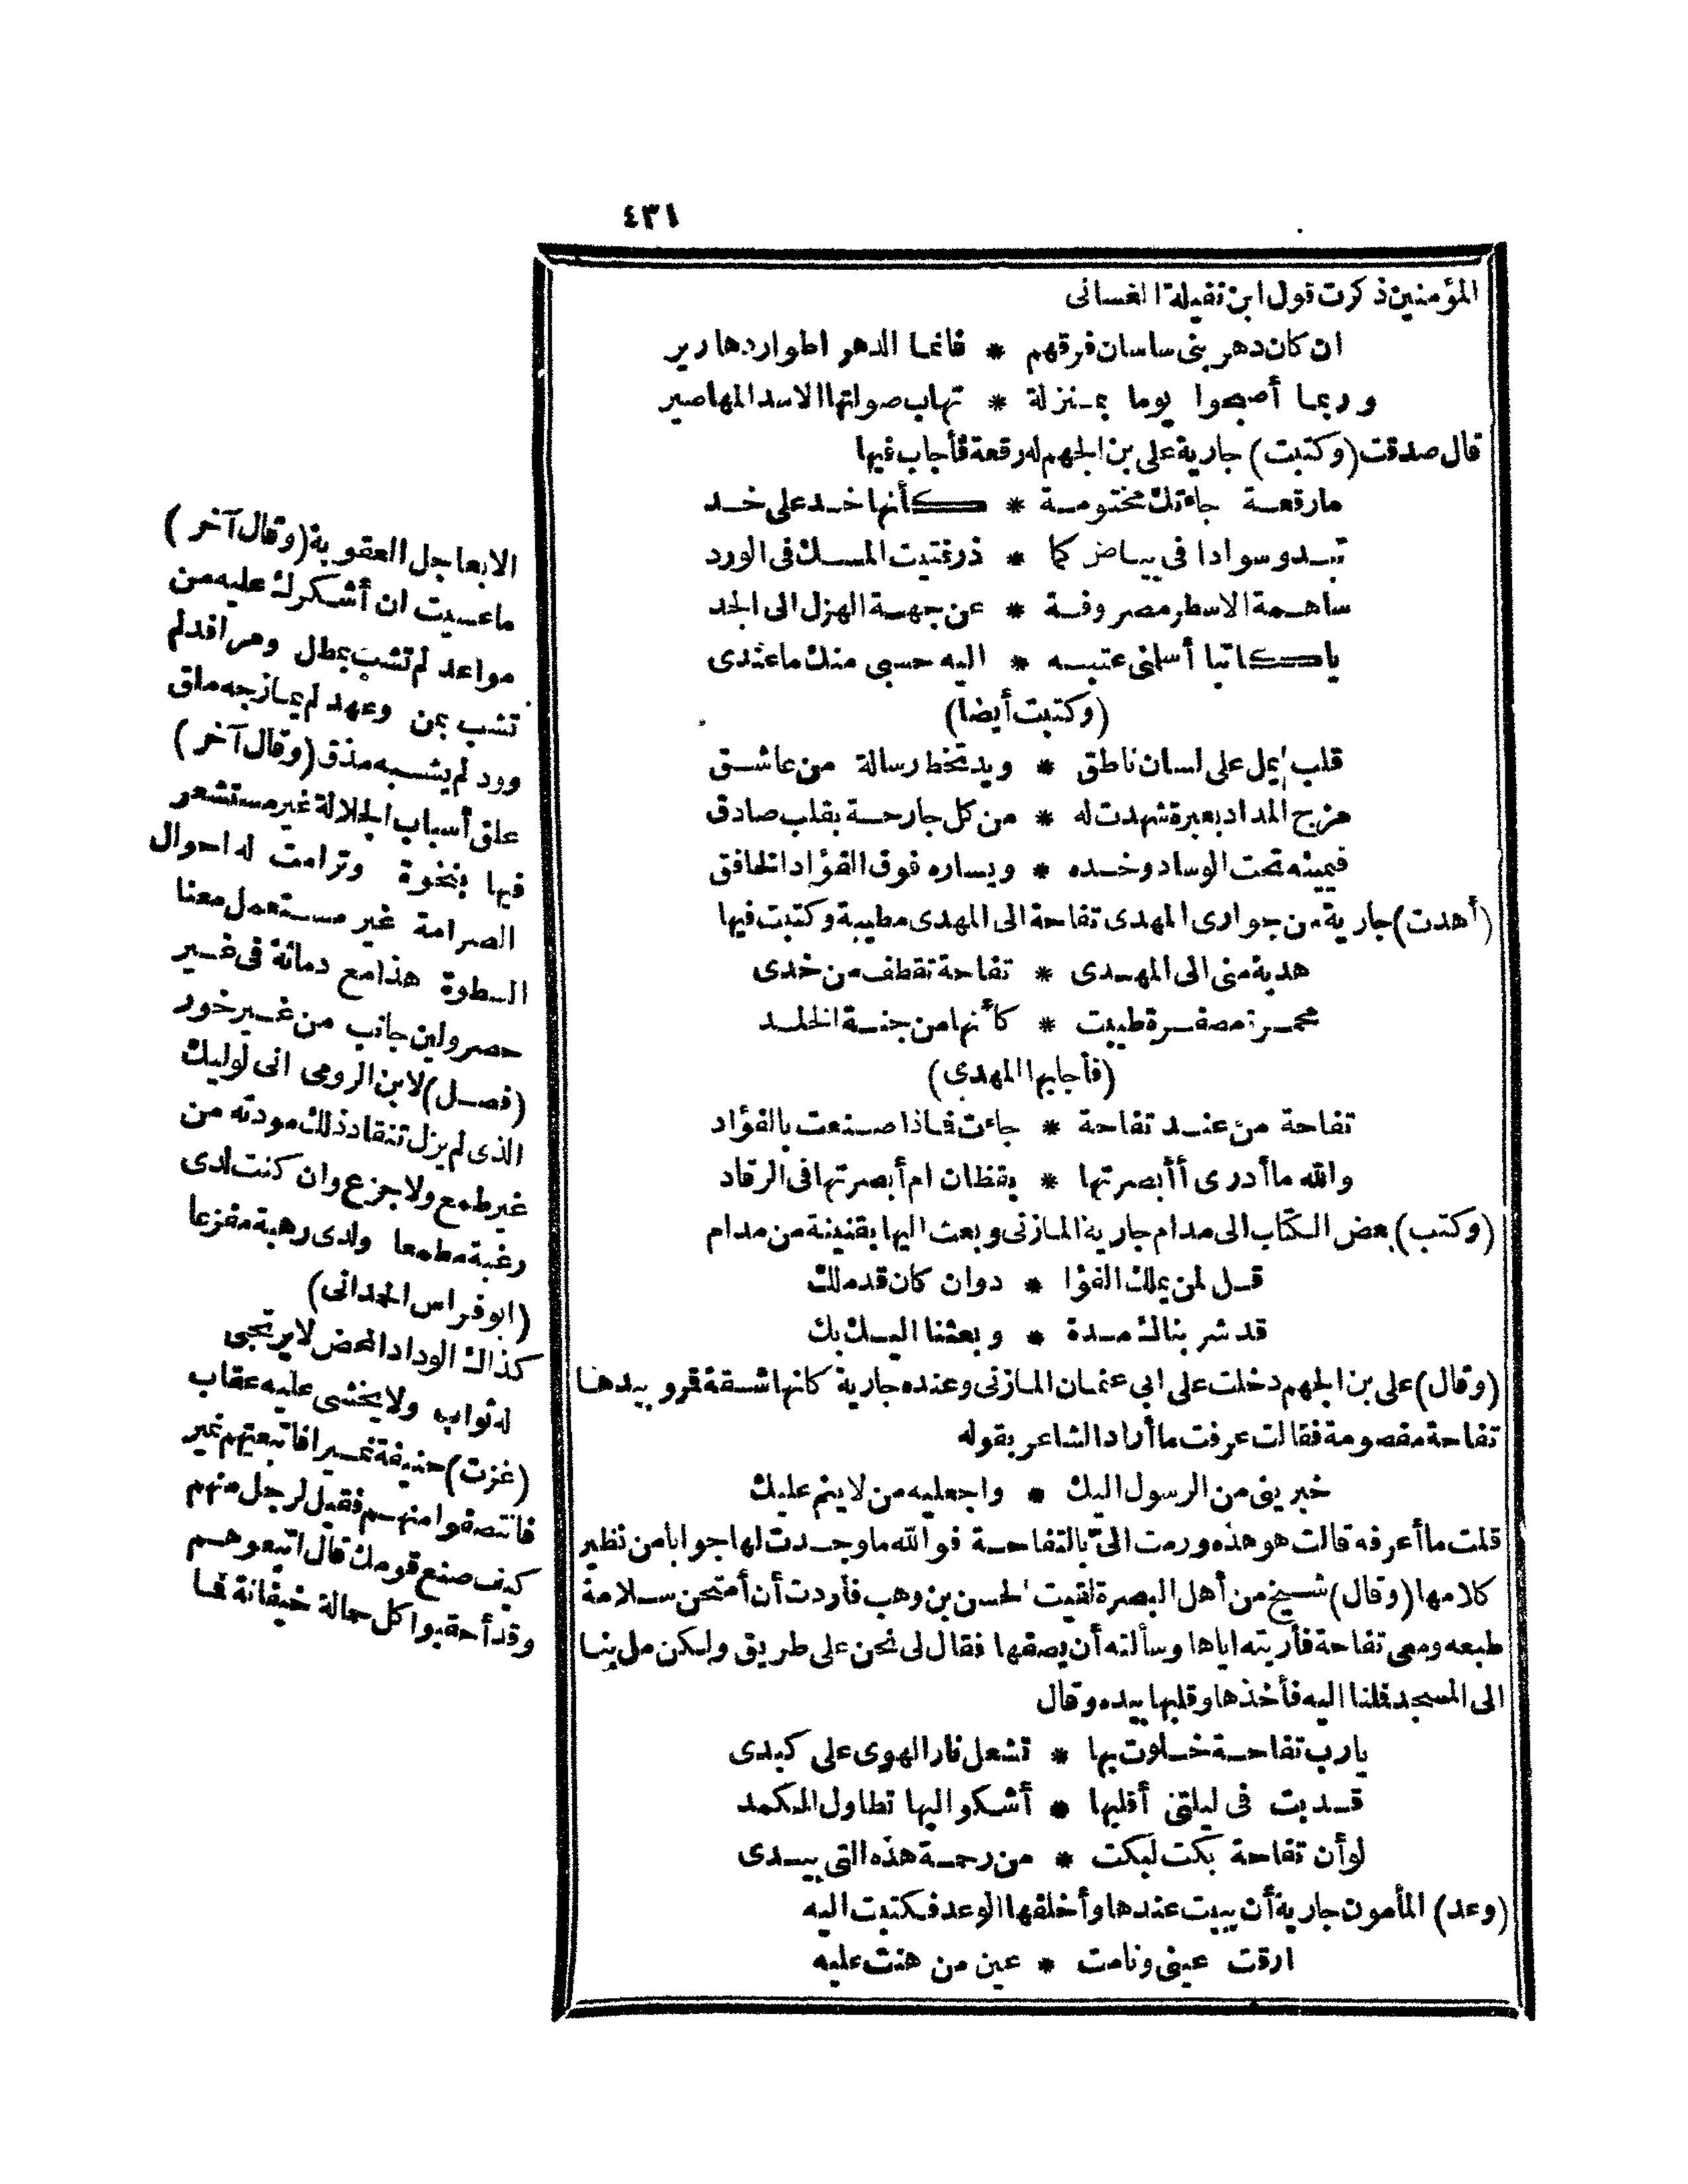 ٤٣١
المؤمنين ذكرت قول ابن نفيلة الغسانى
ان كان دهر بنى ساسان فرقهم * فانما الدهر اطوار دهارير
وربما أصبحوا يوما بمنزلة * تهاب صولتها الاسد المهاصير
قال صدقت (وكتبت) جارية على بن الجهم له رقعة فأجاب فيها
مارقعة جاءتك مختومة * كأنها خد على خد
تبدو سوادا فى بياض كما * ذر فتيت المسك فى الورد
ساهمة الاسطر مصروفة * عن جهة الهزل الى الجد
ياكاتبا أسلمنى عتبه * اليه حسبى منك ماعندى
(وكتبت أيضا)
قلب يمل على لسان ناطق * ويد تخط رسالة من عاشق
مزج المداد بعبرة شهدت له * من كل جارحة بقلب صادق
فيمينه تحت الوساد وخده * ويساره فوق الفؤاد الخافق
(أهدت) جارية من جوارى المهدى تفاحة الى المهدى مطيبة وكتبت فيها
هدية منى الى المهدى * تفاحة تقطف من خدى
محمرة مصفرة طيبت * كأنها من جنة الخلد
(فأجابها المهدى)
تفاحة من عند تفاحة * جاءت فاذا صنعت بالفؤاد
والله ماأدرى أأبصرتها * يقظان ام أبصرتها فى الرقاد
(وكتب) بعض الكتاب الى مدام جارية المازنى وبعث اليها بقنينة من مدام
قل لمن يملك الفؤا * د وان كان قد ملك
قد شربنالك مدة * وبعثنا اليك بك
(وقال) على بن الجهم دخلت على ابى عثمان المازنى وعنده جارية كانها شقة قمر وبيدها
تفاحة مقصومة فقالت عرفت ماأراد الشاعر بقوله
خبرينى من الرسول اليك * واجعليه من لاينم عليك
قلت ماأعرفه قالت هو هذه ورمت الىّ بالتفاحة فوالله ماوجدت لها جوابا من نظير
كلامها (وقال) شيخ من أهل البصرة لقيت الحسن بن وهب فأردت أن أمتحن سلامة
طبعه ومعى تفاحة فأريته اياها وسألته أن يصفها فقال لى نحن على طريق ولكن مل بنا
الى المسجد فملنا اليه فأخذها وقلبها بيده وقال
يارب تفاحة خلوت بها * تشعل نار الهوى على كبدى
قد بت فى ليلتى أقلبها * أشكو اليها تطاول الكمد
لو أن تفاحة بكت لبكت * من رحمة هذه التى بيدى
(وعد) المأمون جارية أن يبيت عندها وأخلفها الوعد فكتبت اليه
ارقت عينى ونامت * عين من هنت عليه
الابعاجل العقوبة (وقال آخر)
ماعسيت ان أشكرك عليه من
مواعد لم تشب بمطل ومرافد لم
تشب بمن وعهد لم يمازجه ملق
وود لم يشبه مذق (وقال آخر)
علق أسباب الجلالة غير مستشعر
فيها بنخوة وترامت له احوال
الصرامة غير مستعمل معنا
السطوة هذا مع دماثة فى غير
حصر ولين جانب من غير خور
(فصل) لابن الرومى انى لوليك
الذى لم يزل تنقاد ذلك مودته من
غير طمع ولا جزع وان كنت لدى
رغبة مطمعا ولدى رهبة مفزعا
(ابو فراس الحمدانى)
كذاك الوداد المحض لايرتجى
له ثواب ولا يخشى عليه عقاب
(غزت) حنيفة نميرا فاتبعتهم نمير
فانتصفوا منهم فقيل لرجل منهم
كيف صنع قومك قال اتبعوهم
وقد أحقبوا كل جمالة خيفانة فما